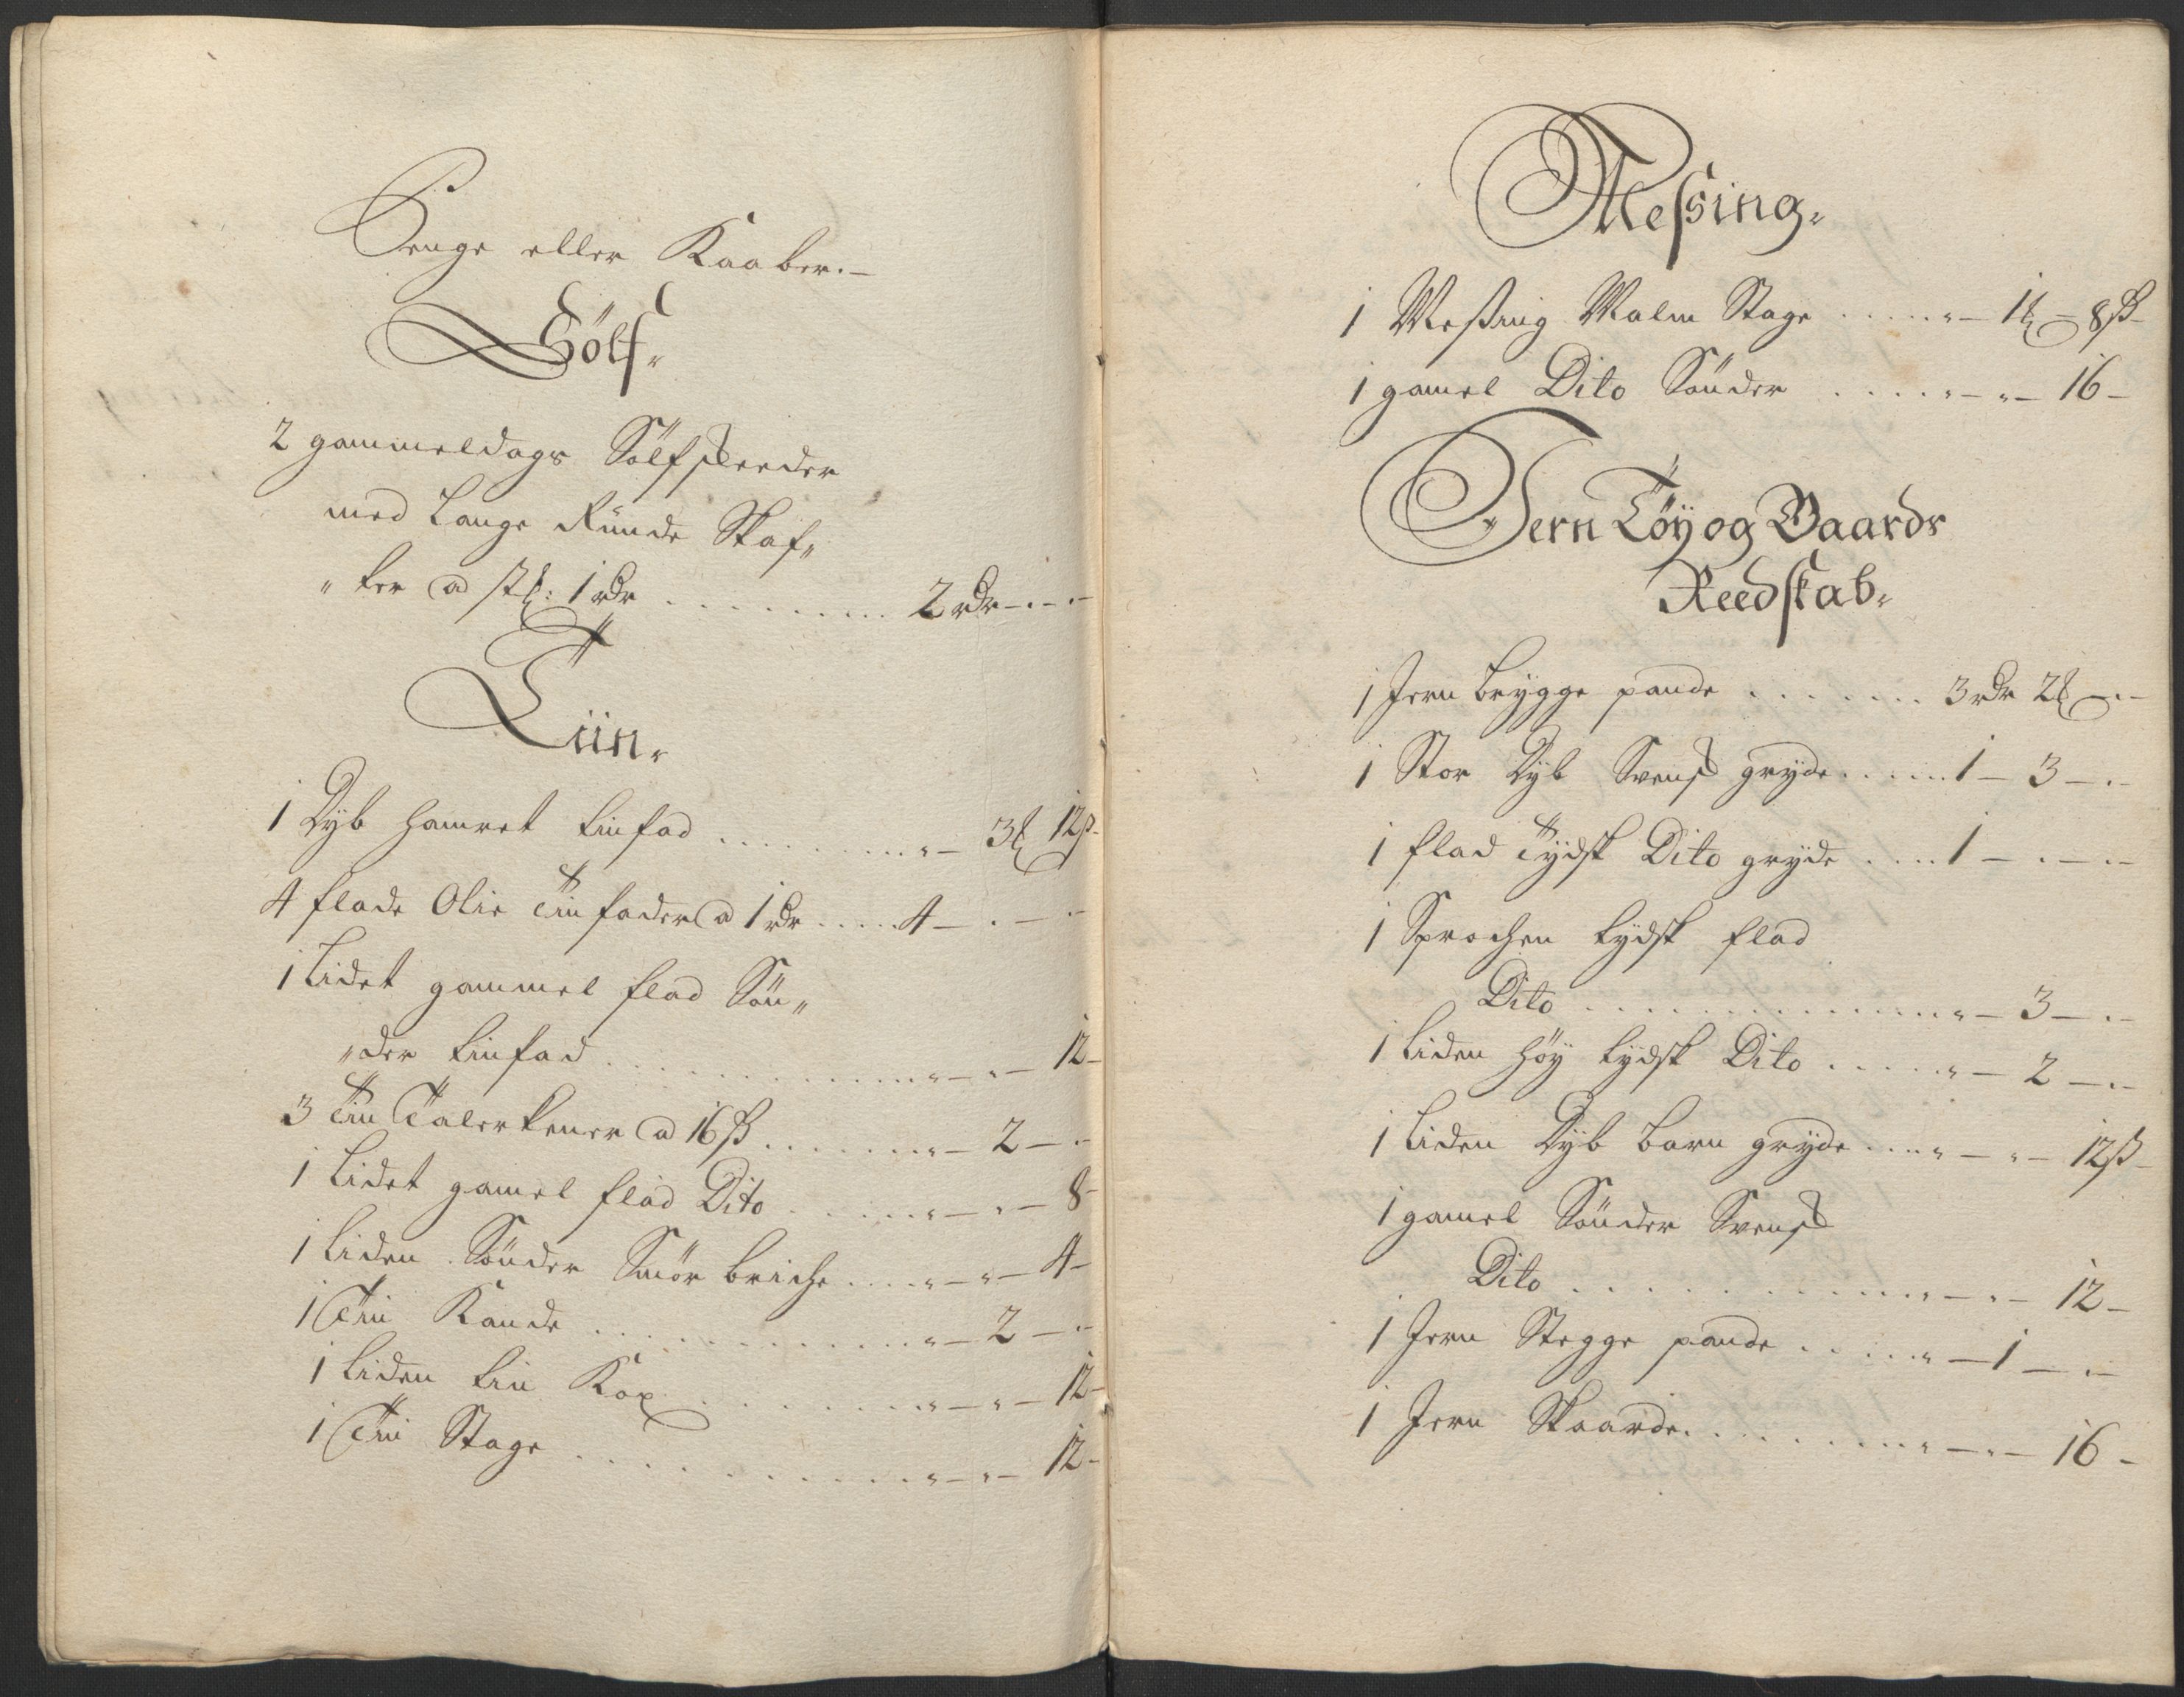 Penge eller Kaaber. –
Sölf„
2 gammeldags Sölfskeeder
med Lange Runde Skaf„
„ter a stk: 1 rdr ......... 2 rdr – „ – „ –
Tiin„
1 Dyb hamret tinfad .......... „ – 3 12 ß
4 flade Olie Tinfader a 1 rdr ..... 4 – „ – „ –
1 Lidet gammel flad Sön„
„der tinfad ............. „ – „ – 12 –
3 Tin Talerkener a 16 ß ........ „ – 2 – „
1 Lidet gamel flad Dito ....... „ – „ – 8 –
1 Liden Sönder Smör briche .... „ – „ – 4 –
1 Tin Kande ............ „ – 2 – „ –
1 Liden tin Kop ......... „ – „ – 12 –
1 Tin Stage ............ „ – „ – 12 –
Messing„
1 Messing Malm Stage ..... „ – 1 – 8 ß –
1 gamel Dito Sönder .... „ – „ – 16 –
Jern Töy og Gaards
Reedskab„
1 Jern brygge pande ....... 3 rdr 2 – „ –
1 Stor Dyb Svensk gryde ..... 1 – 3 – „ –
1 flad Tydsk Dito gryde .... 1 – „ – „ –
1 Sprochen tydsk flad
Dito .............. „ – 3 – „ –
1 liden höy tydsk Dito ..... „ – 2 – „ –
1 Liden Dyb barn gryde .... „ – „ – 12 ß –
1 gamel Sönder Svensk
Dito ............ „ – „ – 12 –
1 Jern Stegge pande ..... „ – 1 – „ –
1 Jern Skaarde ......... „ – „ – 16 –